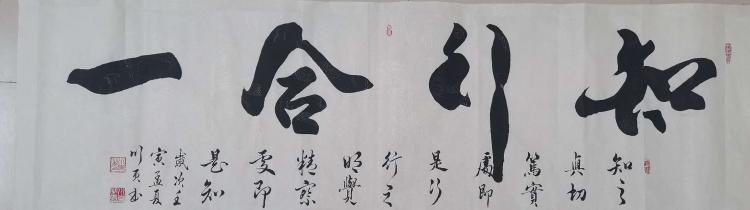 知行合一
知之
真切
篤實
處即
是行
行之
明覺
精察
處即
是知
歲次壬
寅孟夏